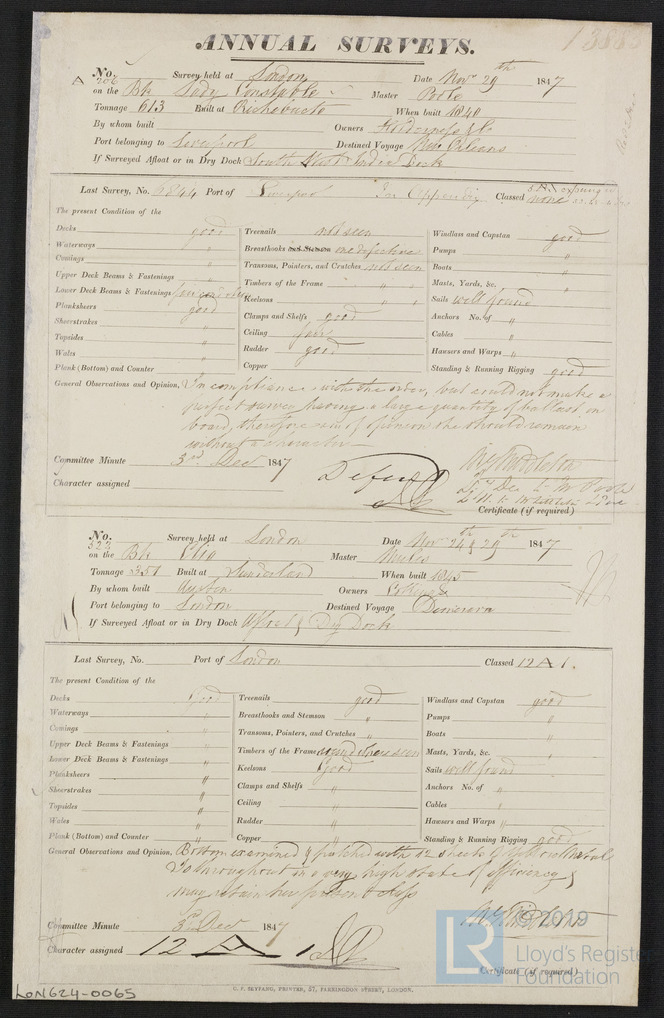 13883
ANNUAL SURVEYS.
A No. 206 Survey held at London Date Novr 29th 1847
on the Bk Lady Constable Master Poole
Tonnage 613 Built at Richebucto When built 1840
By whom built Owners
Port belonging to Liverpool Destined Voyage New Orleans
If Surveyed Afloat or in Dry Dock South West India Dock
Last Survey, No. 6844 Port of Liverpool In Classed none
The present Condition of the
Decks good Treenails not seen Windlass and Capstan good
Waterways " Breasthooks one defective Pumps "
Comings " Transoms, Pointers, and Crutches not seen Boats "
Upper Deck Beams & Fastenings " Timbers of the Frame " " Masts, Yards, &c. "
Lower Deck Beams & Fastenings Keelsons " " Sails well found
Planksheers good Clamps and Shelfs good Anchors No. of "
Sheerstrakes " Ceiling fair Cables "
Topsides " Rudder good Hawsers and Warps "
Wales " Copper Standing & Running Rigging good
Plank (Bottom) and Counter "
General Observations and Opinion, In compliance with the order, but could not make a
perfect survey having a large quantity of ballast on
board, therefore am of opinion she should remain
without a character
Committee Minute 3rd Decr 1847
Character assigned
Certificate (if required)
No. 323 Survey held at London Date Novr 24th & 29th 1847
on the Bk Master
Tonnage 351 Built at Sunderland When built 1845
By whom built Austin Owners
Port belonging to London Destined Voyage Demerara
If Surveyed Afloat or in Dry Dock Afloat & Dry Dock
Last Survey, No. Port of London Classed 12 A 1.
The present Condition of the
Decks Good Treenails good Windlass and Capstan good
Waterways " Breasthooks and Stemson " Pumps "
Comings " Transoms, Pointers, and Crutches " Boats "
Upper Deck Beams & Fastenings " Timbers of the Frame seen Masts, Yards, &c. "
Lower Deck Beams & Fastenings " Keelsons Good Sails well found
Planksheers " Clamps and Shelfs " Anchors No. of "
Sheerstrakes " Ceiling " Cables "
Topsides " Rudder " Hawsers and Warps "
Wales " Copper " Standing & Running Rigging good
Plank (Bottom) and Counter "
General Observations and Opinion, Bottom examined & patched with 12 sheets of Yellow Metal
Is throughout in a very high state of efficiency &
may retain her present class
Committee Minute 3rd Decr 1847
Character assigned 12 A 1
Certificate (if required)
C. F. SEYFANG, PRINTER, 57, FARRINGDON STREET, LONDON.
LON624-0065
LR
©2019
Lloyd's Register
Foundation